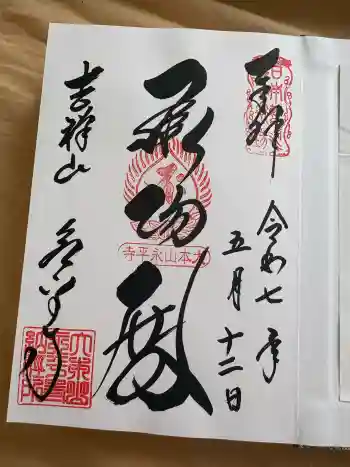 奉拝
令和七年
五月十二日
承陽殿
大本山永平寺
吉祥山
永平寺